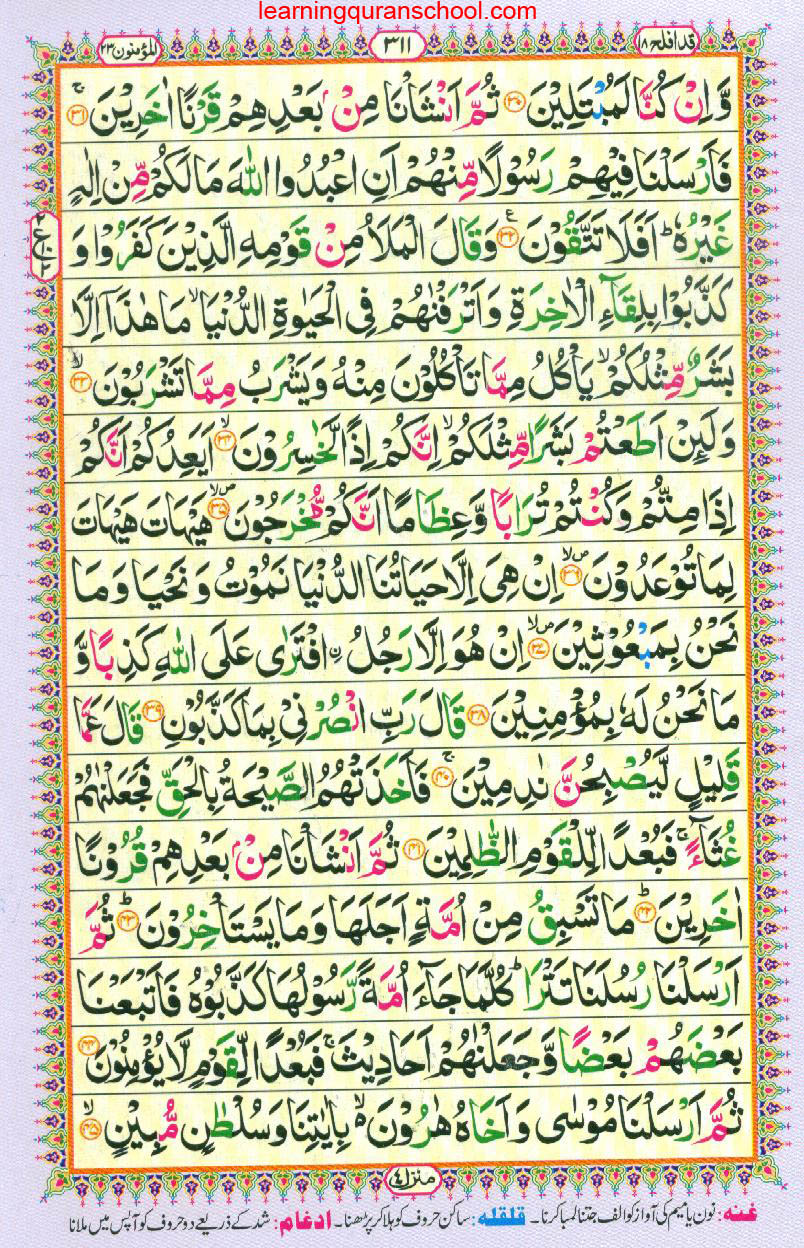 learningquranschool.com
قد افلح ١٨
٣١١
المؤمنون ٢٣
وَّاِنْ كُنَّا لَمُبْتَلِيْنَ ﴿٣٠﴾ ثُمَّ اَنْشَاْنَا مِنْۢ بَعْدِهِمْ قَرْنًا اٰخَرِيْنَ ۚ﴿٣١﴾
فَاَرْسَلْنَا فِيْهِمْ رَسُوْلًا مِّنْهُمْ اَنِ اعْبُدُوا اللّٰهَ مَا لَكُمْ مِّنْ اِلٰهٍ
غَيْرُهٗ ؕ اَفَلَا تَتَّقُوْنَ ﴿٣٢﴾ع وَقَالَ الْمَلَاُ مِنْ قَوْمِهِ الَّذِيْنَ كَفَرُوْا وَ
كَذَّبُوْا بِلِقَآءِ الْاٰخِرَةِ وَاَتْرَفْنٰهُمْ فِى الْحَيٰوةِ الدُّنْيَا ۙ مَا هٰذَاۤ اِلَّا
بَشَرٌ مِّثْلُكُمْ ۙ يَاْكُلُ مِمَّا تَاْكُلُوْنَ مِنْهُ وَيَشْرَبُ مِمَّا تَشْرَبُوْنَ ۙ﴿٣٣﴾
وَلَئِنْ اَطَعْتُمْ بَشَرًا مِّثْلَكُمْ ۙ اِنَّكُمْ اِذًا لَّخٰسِرُوْنَ ۙ﴿٣٤﴾ اَيَعِدُكُمْ اَنَّكُمْ
اِذَا مِتُّمْ وَكُنْتُمْ تُرَابًا وَّعِظَامًا اَنَّكُمْ مُّخْرَجُوْنَ ۙ﴿٣٥﴾ هَيْهَاتَ هَيْهَاتَ
لِمَا تُوْعَدُوْنَ ۙ﴿٣٦﴾ اِنْ هِىَ اِلَّا حَيَاتُنَا الدُّنْيَا نَمُوْتُ وَنَحْيَا وَمَا
نَحْنُ بِمَبْعُوْثِيْنَ ۙ﴿٣٧﴾ اِنْ هُوَ اِلَّا رَجُلُ ۨافْتَرٰى عَلَى اللّٰهِ كَذِبًا وَّ
مَا نَحْنُ لَهٗ بِمُؤْمِنِيْنَ ﴿٣٨﴾ قَالَ رَبِّ انْصُرْنِىْ بِمَا كَذَّبُوْنِ ﴿٣٩﴾ قَالَ عَمَّا
قَلِيْلٍ لَّيُصْبِحُنَّ نٰدِمِيْنَ ۚ﴿٤٠﴾ فَاَخَذَتْهُمُ الصَّيْحَةُ بِالْحَقِّ فَجَعَلْنٰهُمْ
غُثَآءً ۚ فَبُعْدًا لِّلْقَوْمِ الظّٰلِمِيْنَ ﴿٤١﴾ ثُمَّ اَنْشَاْنَا مِنْۢ بَعْدِهِمْ قُرُوْنًا
اٰخَرِيْنَ ؕ﴿٤٢﴾ مَا تَسْبِقُ مِنْ اُمَّةٍ اَجَلَهَا وَمَا يَسْتَاْخِرُوْنَ ؕ﴿٤٣﴾ ثُمَّ
اَرْسَلْنَا رُسُلَنَا تَتْرَا ؕ كُلَّمَا جَآءَ اُمَّةً رَّسُوْلُهَا كَذَّبُوْهُ فَاَتْبَعْنَا
بَعْضَهُمْ بَعْضًا وَّجَعَلْنٰهُمْ اَحَادِيْثَ ۚ فَبُعْدًا لِّقَوْمٍ لَّا يُؤْمِنُوْنَ ﴿٤٤﴾
ثُمَّ اَرْسَلْنَا مُوْسٰى وَاَخَاهُ هٰرُوْنَ ۙ۬ بِاٰيٰتِنَا وَسُلْطٰنٍ مُّبِيْنٍ ۙ﴿٤٥﴾
منزل ٤
غنه: نون یا میم کی آواز کو الف جتنا لمبا کرنا۔ قلقله: ساکن حروف کو ہلا کر پڑھنا۔ ادغام: شد کے ذریعے دو حروف کو آپس میں ملانا